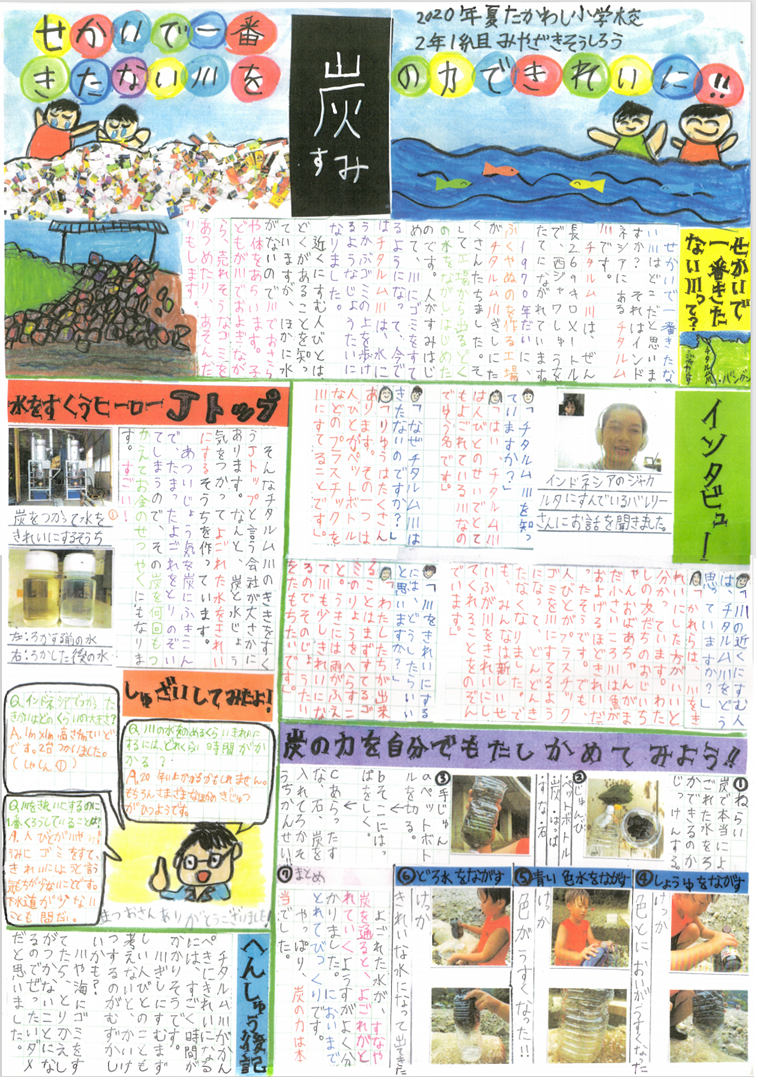 2020年夏たかわし小学校
2年1組みやざきそうしろう
せかいで一番
きたない川を
炭
すみ
の力できれいに!!
せかいで
一番きた
ない川って?
せかいで一番きたな
い川はどこだと思いま
すか? それはインド
ネシアにあるチタルム
川です。
チタルム川は、ぜん
長269キロメートル
で、西ジャワしゅうを
たてにながれています。
1970年だいに、
ふくやぬのを作る工場
がチタルム川ぞいにた
くさんたちました。そ
して工場から出るどく
の水をながしはじめた
のです。人がすみはじ
めて、川にゴミをすて
るようになって、今で
はチタルム川は、水に
うかぶゴミの上を歩け
るようなじょうたいに
なりました。
近くにすむ人びとは
どくがあることを知っ
ていますが、ほかに水
がないので川でおさら
や体をあらいます。子
どもが川でおよぎなが
ら、売れそうなゴミを
あつめたり、あそんだ
りもします。
インタビュー
インドネシアのジャカ
ルタにすんでいるバレリー
さんにお話を聞きました。
「チタルム川を知っ
ていますか?」
「はい。チタルム川
は人びとのせいでとて
もよごれている川なの
でゆう名です。」
「なぜチタルム川は
きたないのですか?」
「りゆうはたくさん
あります。その一つは
人びとがペットボトル
などのプラスチックを
川にすてることです。」
「川の近くにすむ人
は、チタルム川をどう
思っていますか?」
「かれらは、川をき
れいにした方がいいと
分かっています。わた
しの友だちのおじいち
ゃんおばあちゃんがま
だ小さいころ川は魚が
およげるほどきれいだ
ったそうです。でも、
人びとがプラスチック
ゴミを川にすてるよう
になって、どんどんき
たなくなりました。で
も、みんなは新しいせ
いふが川をきれいにし
てくれることをのぞん
でいます。」
「川をきれいにする
には、どうしたらいい
と思いますか?」
「わたしたちが出来
ることはまずすてるゴ
ミのりょうをへらすこ
と。うきには雨がふえ
て川も少しきれいにな
るのでそのじょうたい
をたもちたいです。」
水をすくうヒーロー Jトップ
そんなチタルム川のききをすく
うJトップと言う会社が大さかに
あります。なんと、炭と水じょう
気をつかってよごれた水をきれい
にするそうちを作っています。
あついじょう気を炭にふきこん
で、たまったよごれをとりのぞい
てしまうので、その炭を何回もつ
かえてお金のせつやくにもなりま
す。すごい!
炭をつかって水を
きれいにするそうち
①
左:ろかする前の水
右:ろかした後の水
しゅざいしてみたよ!
Q.インドネシアでつかった
きかいはどのくらいの大きさ?
A.1m×1m高さ4mていど
です。2台つくりました。
(しゃしん①)
Q.川の水を飲めるくらいきれいに
するには、どれくらい時間がか
かる?
A.20年以上かかるかもしれません。
もちろんさまざまなほかのぎじゅつ
がひつようです。
Q.川をきれいにするのに
1番くろうしていることは?
A.人びとが川やみず
うみにゴミをすて、
きれいにはと言う
気もちが少ないことです。
下水道が少ないこ
とも問だい。
まつおさんありがとうございました!
へんしゅう後記
チタルム川がかん
ぺきにきれいになる
には、すごく時間が
かかりそうです。
川ぞいにすむまず
しい人びとのことも
考えないと、かいけ
つするのがむずかし
いかも?
川や海にゴミをす
てたら、とりかえし
がつかないことにな
るのでぜったいダメ
だと思いました。
炭の力を自分でもたしかめてみよう!!
①ねらい
炭で本当によ
ごれた水をろ
かができるのか
じっけんする。
②じゅんび
ペットボトル
炭、はっぱ
すな、石
③手じゅん
aペットボト
ルを切る。
bそこにはっ
ぱをしく。
cあらったす
な、石、炭を
入れてかさそ
うちがかんせい
④しょうゆをながす
けっか
色とにおいがうすくなった
⑤青い色水をながす
けっか
色がうすくなった!!
⑥どろ水をながす
けっか
きれいな水になって出てきた
⑦まとめ
よごれた水が、すなや
炭を通ると、よごれがと
れていくようすがよく分
かりました。においまで
とれてびっくりです。
やっぱり、炭の力は本
当でした。